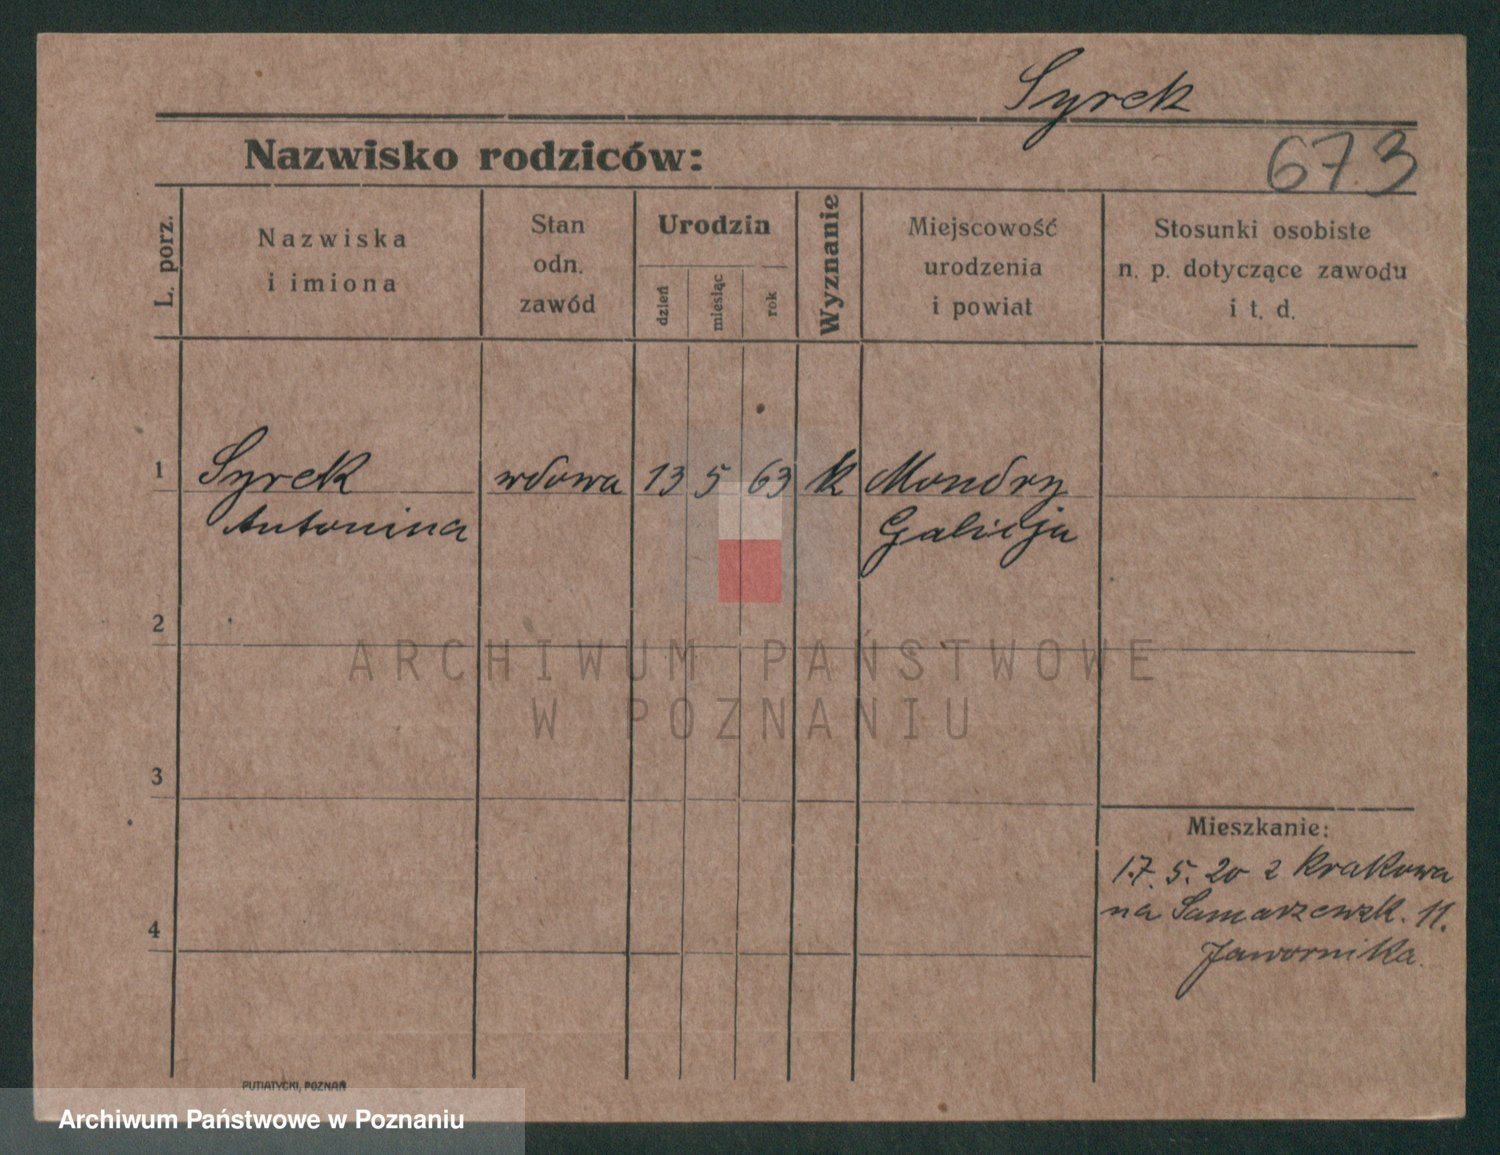 Syrek
Nazwisko rodziców:
673
L. porz.
Nazwiska
i imiona
Stan
odn.
zawód
Urodzin
dzień
miesiąc
rok
Wyznanie
Miejscowość
urodzenia
i powiat
Stosunki osobiste
n. p. dotyczące zawodu
i t. d.
1 Syrek wdowa 13 5 63 k Mondry
Antonina Galicja
2
ARCHIWUM PAŃSTWOWE
W POZNANIU
3
Mieszkanie:
17. 5. 20 z Krakowa
4
na Samarzewsk. 11.
Jawornika.
PUTIATYCKI, POZNAŃ
Archiwum Państwowe w Poznaniu